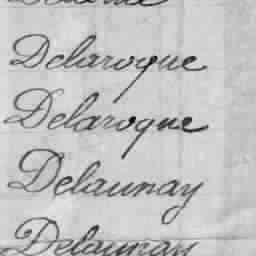 Delaroque
Delaroque
Delaunay
Delaunay